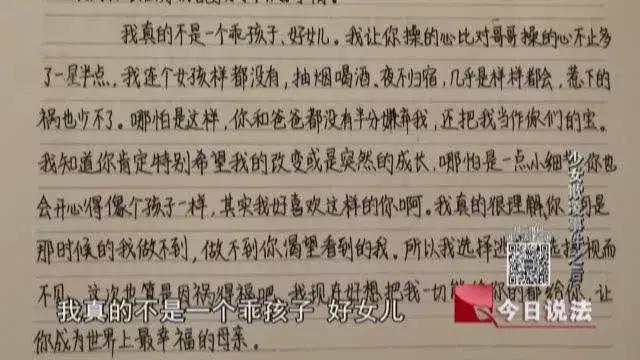 我真的不是一个乖孩子、好女儿。我让你操的心比对哥哥操的心不止多
了一星半点,我连个女孩样都没有,抽烟喝酒、夜不归宿,几乎是样样都会,惹下的
祸也少不了。哪怕是这样,你和爸爸都没有半分嫌弃我,还把我当作你们的宝
我知道你肯定特别希望我的改变或是突然的成长,哪怕是一点小细节你也
会开心得像个孩子一样,其实我好喜欢这样的你啊。我真的很理解你
那时候的我做不到,做不到你渴望看到的我。所以我选择 视而
不见 这次也算是因祸得福吧 我现在好想把我一切能给你的都给你 让
你成为世界上最幸福的母亲。
我真的不是一个乖孩子 好女儿
今日说法